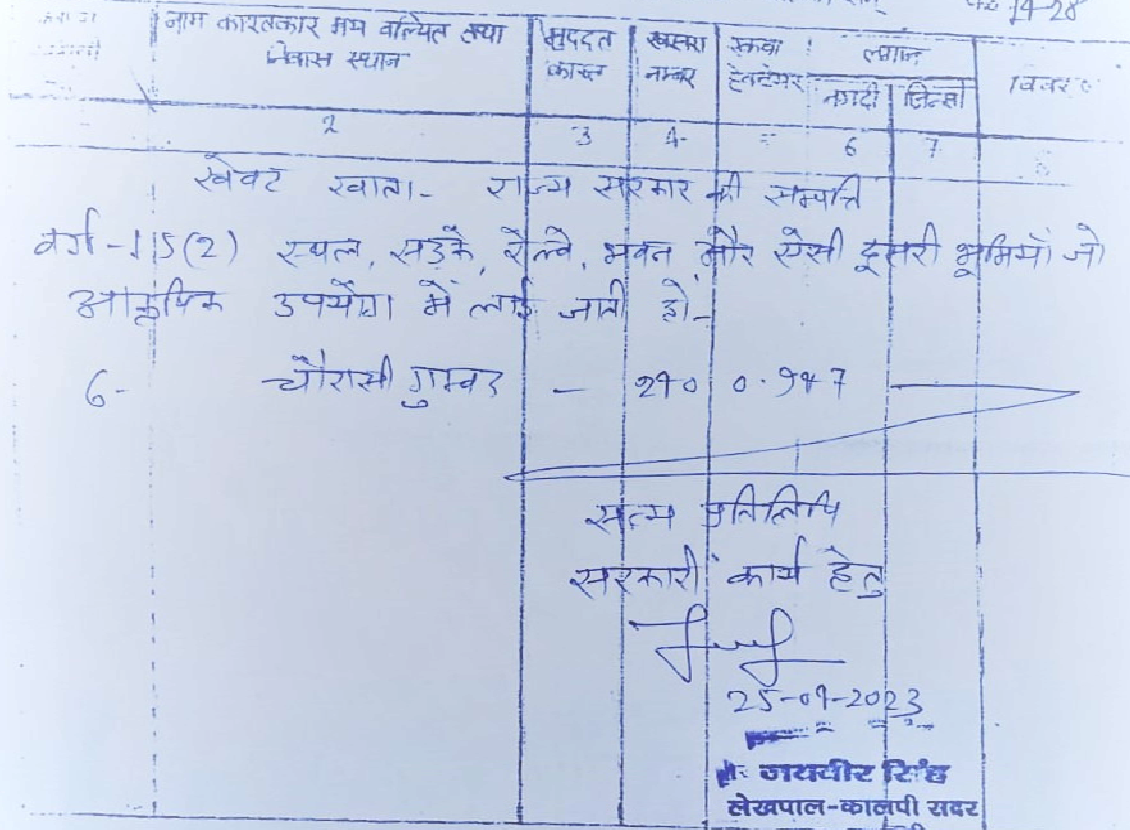 14-28
नाम काश्तकार मय वल्दियत तथा
निवास स्थान
मुद्दत
काश्त
खसरा
नम्बर
रकवा
हेक्टेयर
लगान
नगदी
जिन्सी
2 3 4 6 7 8
खेवट खाता- राज्य सरकार की सम्पत्ति
वर्ग-15(2) स्थल, सड़कें, रेल्वे, भवन और ऐसी दूसरी भूमियाँ जो
उपयोग में लाई जाती हो-
6- चौरासी गुम्बद —
सत्य प्रतिलिपि
सरकारी कार्य हेतु
जयवीर सिंह
लेखपाल-कालपी सदर